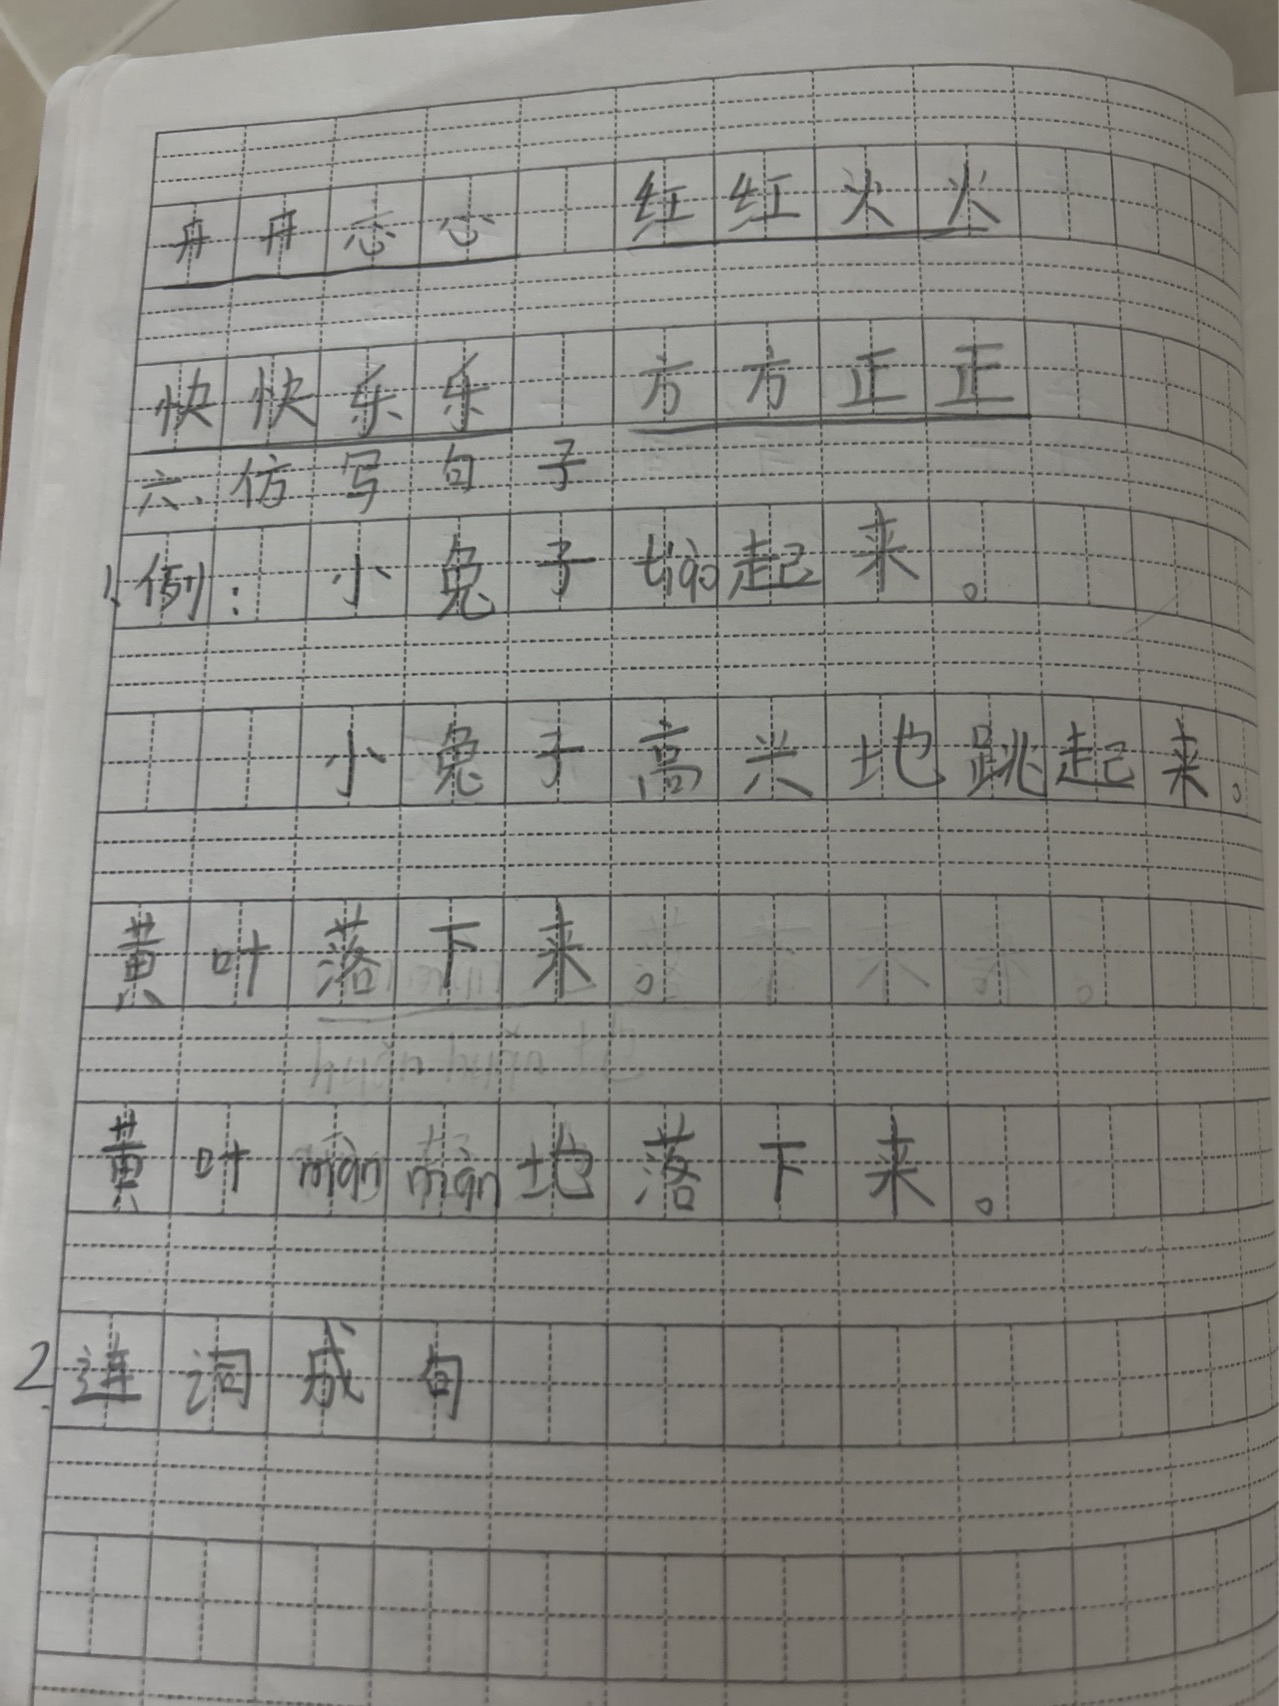 开开心心 红红火火
快快乐乐 方方正正
六、仿写句子
1.例：小兔子tiào起来。
小兔子高兴地跳起来。
黄叶落下来。
黄叶màn màn地落下来。
2.连词成句